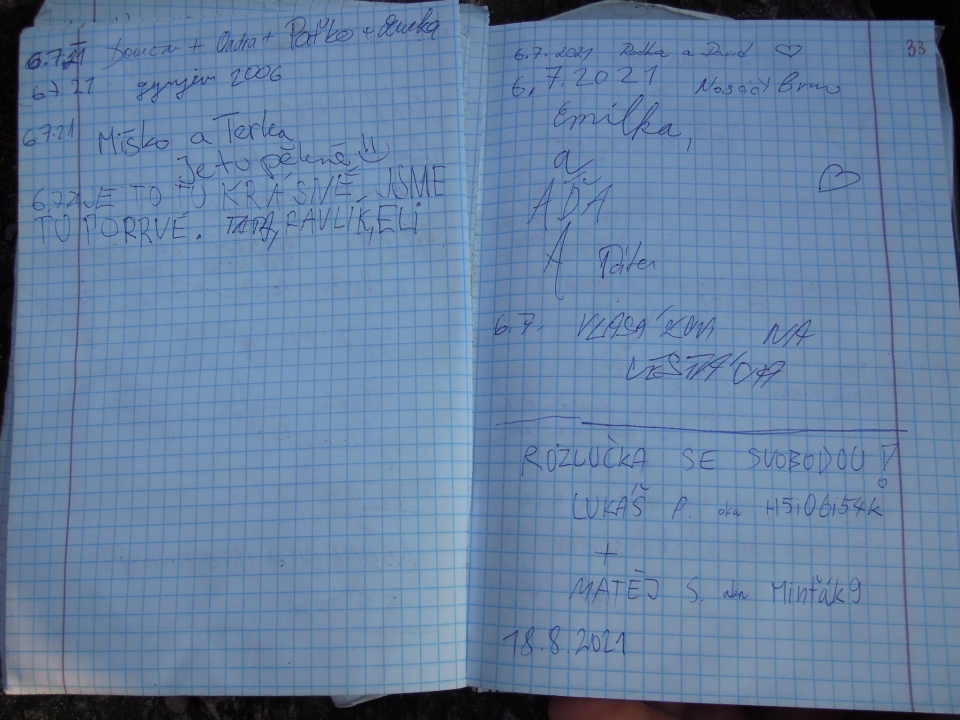 6.7.21 + Ondra + Paťko +
6.7.21 2006
6.7.21 Miško a Terka
Je to pěkné
6.7.21 JE TO TU KRÁSNĚ. JSME
TU POPRVÉ. PAVLÍK, ELI
33
6.7.2021 a David
6.7.2021 Brno
Emilka,
a
ÁĎA
A
6.7. NA
ROZLUČKA SE SVOBODOU!
LUKÁŠ P. aka H5iO6i54k
+
MATĚJ S. aka Minťák9
18.8.2021